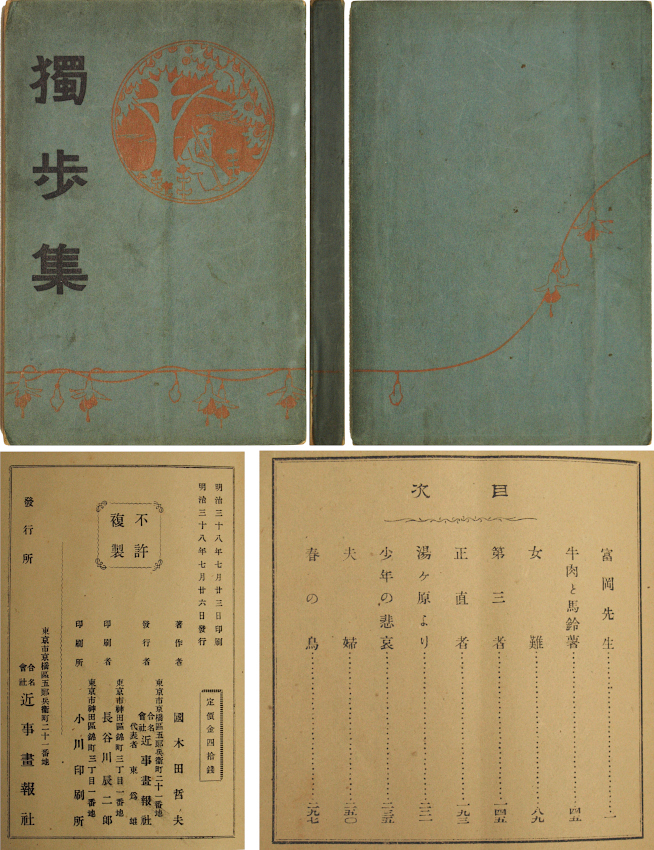 獨步集
不許複製
明治三十八年七月廿三日印刷
明治三十八年七月廿六日發行
定價金四拾錢
著作者 國木田哲夫
東京市京橋區五郎兵衛町二十一番地
發行者 合名會社近事畫報社
代表者 東爲雄
東京市神田區錦町三丁目一番地
印刷者 長谷川辰二郎
東京市神田區錦町三丁目一番地
印刷所 小川印刷所
東京市京橋區五郎兵衛町二十一番地
發行所 合名會社近事畫報社
目次
富岡先生………一
牛肉と馬鈴薯………四五
女難………八九
第三者………一四五
正直者………一九三
湯ヶ原より………二二一
少年の悲哀………二三五
夫婦………二五〇
春の鳥………二九七